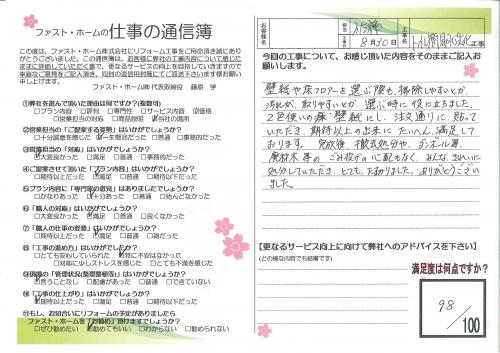 ファスト・ホームの仕事の通信簿
この度は、ファスト・ホーム株式会社にリフォーム工事をご用命頂き誠にあり
がとうございました。この通信簿は、お客様に弊社の工事内容について感じた
ままに評価していただく事で、更なるサービスの向上を目指していきますので
率直なご意見をご記入頂き、同封の返信用封筒にてご返送下さいます様お願い
申し上げます。
ファスト・ホーム㈱ 代表取締役 藤原 亨
①弊社を選んで頂いた理由は何ですか?(複数可)
□プラン内容 □評判 □専門性 □サービス内容 □価格
□営業担当の対応 □商品説明 □当社の場所
②営業担当の「ご提案する姿勢」はいかがでしたか?
□十分誠意を感じた □一生懸命だった □普通 □事務的だった
③営業担当の「対応」はいかがでしたか?
□大変良かった □満足 □普通 □事務的だった
④ご提案させて頂いた「プラン内容」はいかがでしたか?
□期待以上だった □満足 □普通 □期待以下だった
⑤プラン内容に「専門家の意見」はありましたでしょうか?
□かなりあった □十分あった □普通 □殆んどなかった
⑥「職人の対応」はいかがでしたでしょうか?
□大変良かった □満足 □普通 □良くなかった
⑦「職人の仕事の姿勢」はいかがでしたでしょうか?
□期待以上だった □満足 □普通 □期待以下だった
⑧「工事の進め方」はいかがでしたか?
□とても安心していられた □特に不安はなかった
□対応に少しストレスを感じた □とても不満を感じた
⑨現場の「管理状況(整理整頓等)」はいかがでしたか?
□言うことなし □配慮があった □普通 □できていない
⑩「工事の仕上がり」はいかがでしたか?
□期待以上だった □満足 □普通 □期待以下だった
⑪もし、お知合いにリフォームの予定がありましたら
ファスト・ホームを「お勧め」頂けますでしょうか?
□ぜひ勧めたい □勧めてもいい □わからない □勧められない
お客様名
担当
工期
8月30日
工事名
工事
今回の工事について、お感じ頂いた内容をそのままご記入お
願いします。
壁紙や床フロアーを選ぶ際も、掃除しやすいとか
汚れが取りやすいとか、選ぶ時に役に立ちました。
2色使いの壁紙にし、注文通りに、貼って
いただき、期待以上の出来に たいへん満足して
おります。完成後、撤去処分や、ダンボール等、
廃材木等の ごみ投げの心配もなく、みんな、きれいに
処分していただき、とても、たすかりました。ありがとうござい
ました。
【更なるサービス向上に向けて弊社へのアドバイスを下さい】
(どの様な内容でも結構です)
満足度は何点ですか?
98
/100